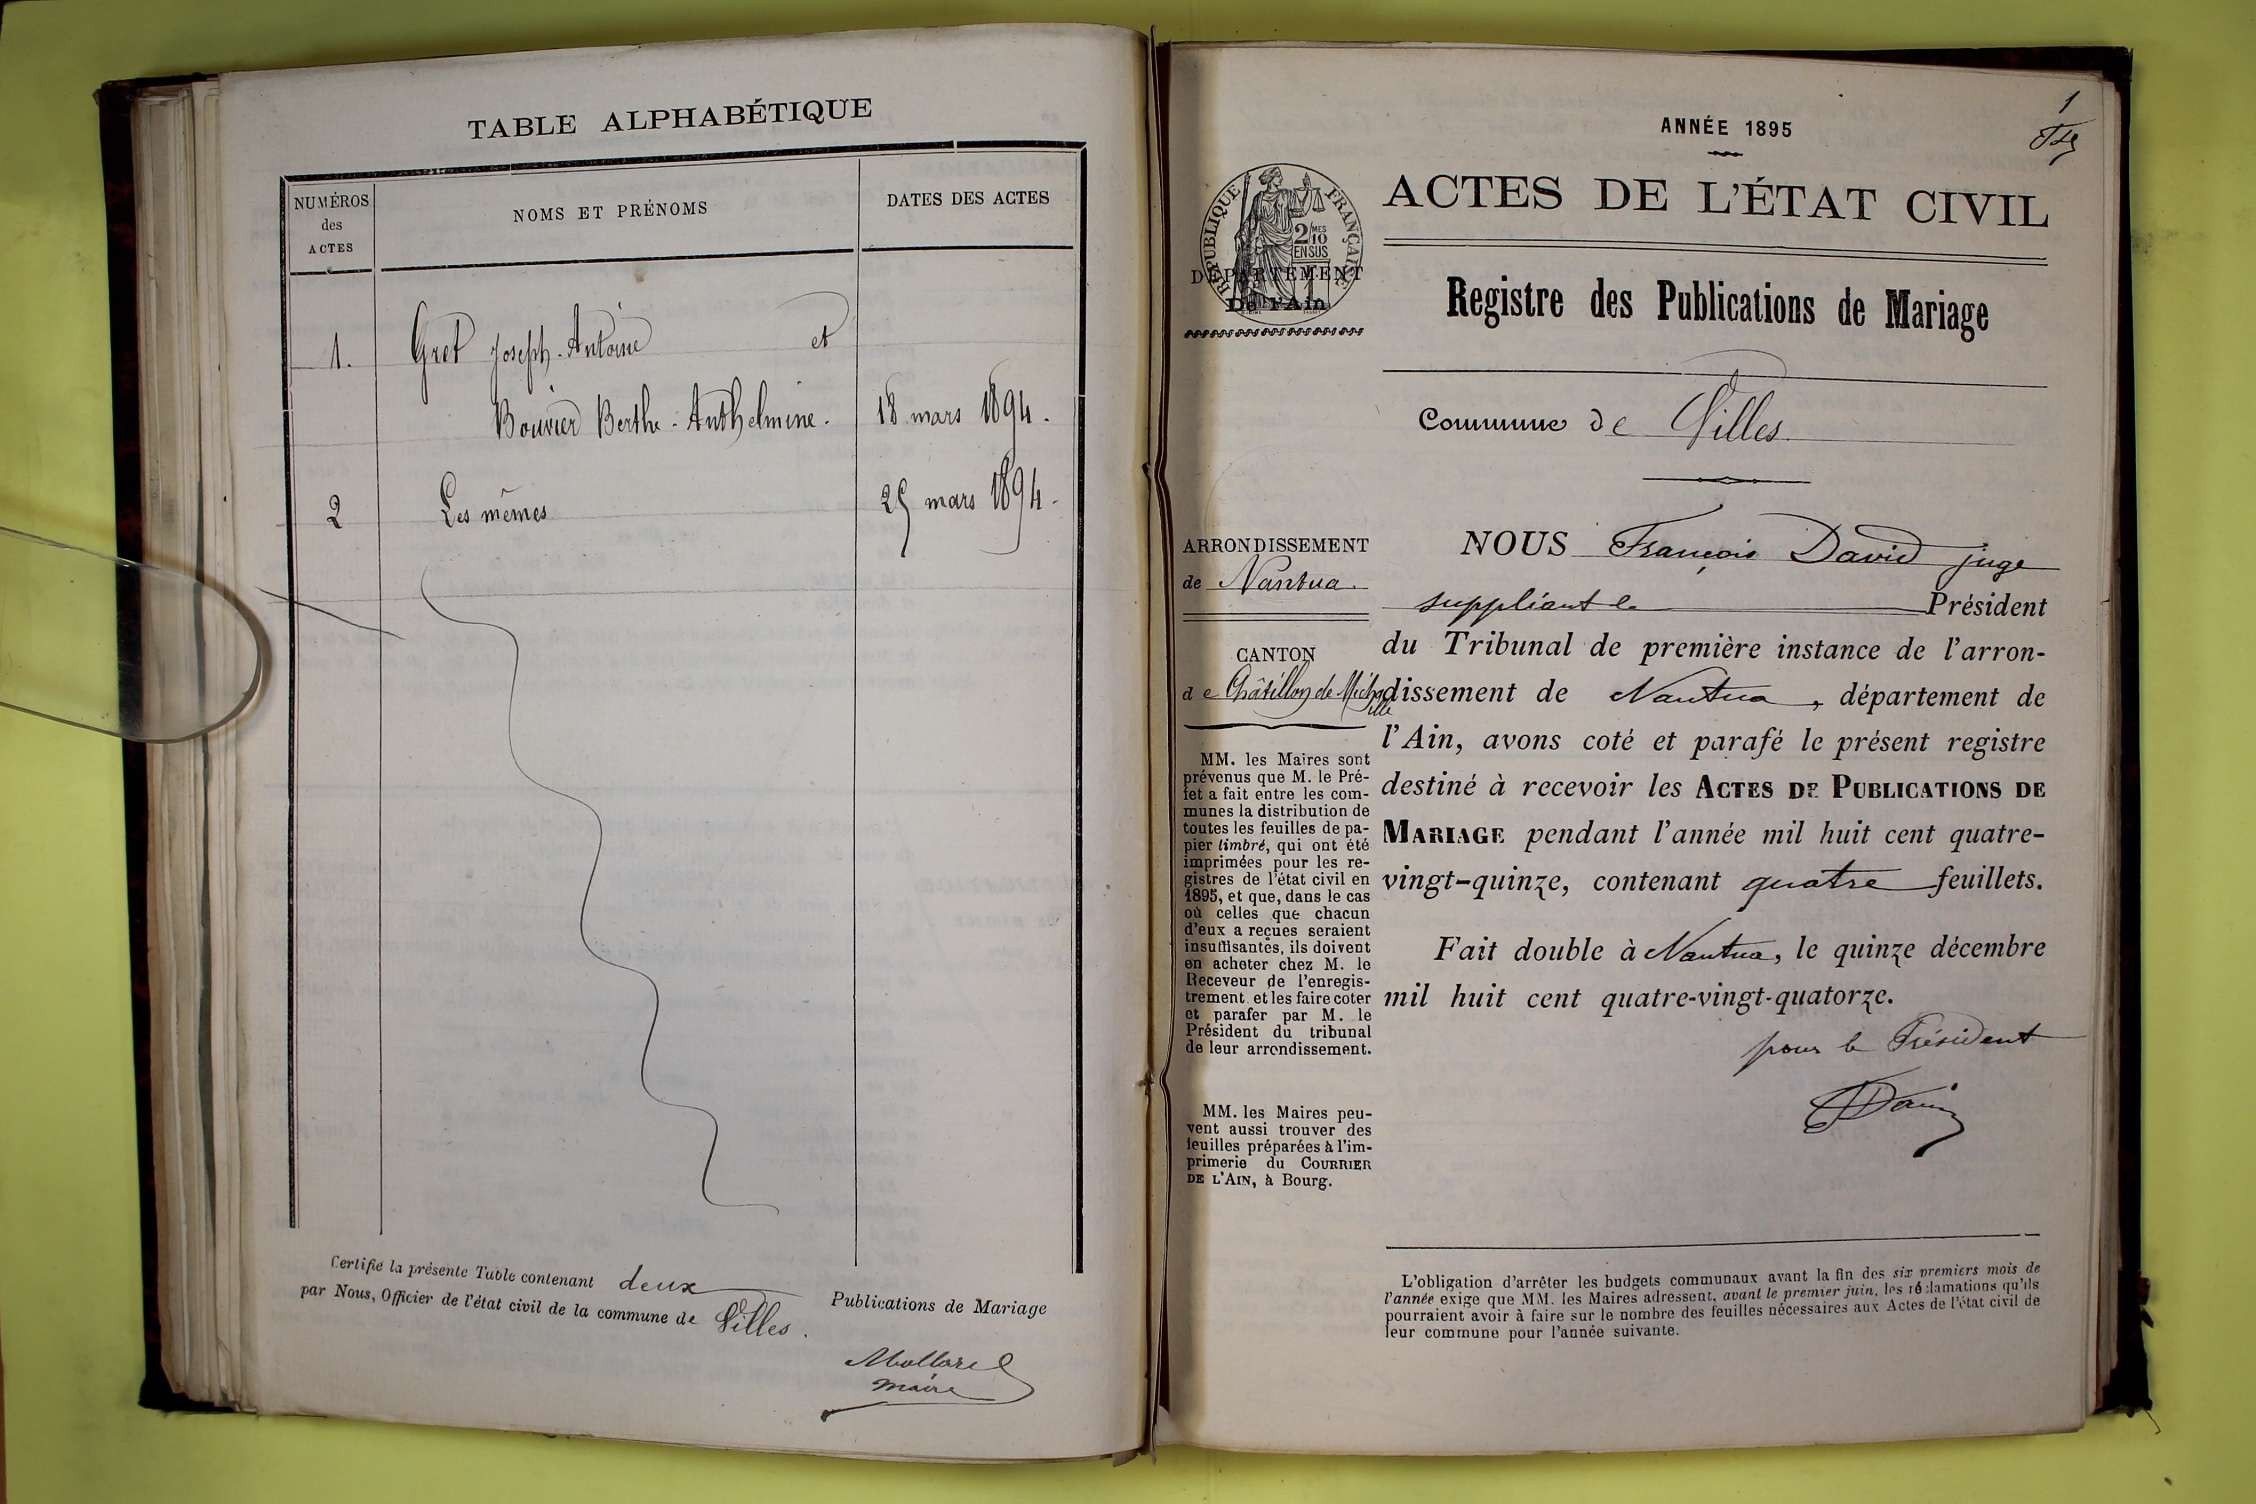 TABLE ALPHABÉTIQUE
NUMÉROS
des
ACTES
NOMS ET PRÉNOMS
DATES DES ACTES
1. Gret Joseph-Antoine et
Bouvier Berthe-Anthelmine. 18 mars 1894.
2 Les mêmes 25 mars 1894.
Certifié la présente Table contenant deux Publications de Mariage
par Nous, Officier de l'état civil de la commune de Villes.
Mollard
maire
1
ANNÉE 1895
ACTES DE L'ÉTAT CIVIL
RÉPUBLIQUE FRANÇAISE
2/10MES
EN SUS
DÉPARTEMENT
De l'Ain
Registre des Publications de Mariage
Commune de Villes.
ARRONDISSEMENT
de Nantua.
CANTON
de Châtillon de Micha
ille
MM. les Maires sont
prévenus que M. le Pré-
fet a fait entre les com-
munes la distribution de
toutes les feuilles de pa-
pier timbré, qui ont été
imprimées pour les re-
gistres de l'état civil en
1895, et que, dans le cas
où celles que chacun
d'eux a reçues seraient
insuffisantes, ils doivent
en acheter chez M. le
Receveur de l'enregis-
trement et les faire coter
et parafer par M. le
Président du tribunal
de leur arrondissement.
MM. les Maires peu-
vent aussi trouver des
feuilles préparées à l'im-
primerie du COURRIER
DE L'AIN, à Bourg.
NOUS François David juge
suppléant le Président
du Tribunal de première instance de l'arron-
dissement de Nantua, département de
l'Ain, avons coté et parafé le présent registre
destiné à recevoir les ACTES DE PUBLICATIONS DE
MARIAGE pendant l'année mil huit cent quatre-
vingt-quinze, contenant quatre feuillets.
Fait double à Nantua, le quinze décembre
mil huit cent quatre-vingt-quatorze.
pour le Président
L'obligation d'arrêter les budgets communaux avant la fin des six premiers mois de
l'année exige que MM. les Maires adressent, avant le premier juin, les réclamations qu'ils
pourraient avoir à faire sur le nombre des feuilles nécessaires aux Actes de l'état civil de
leur commune pour l'année suivante.